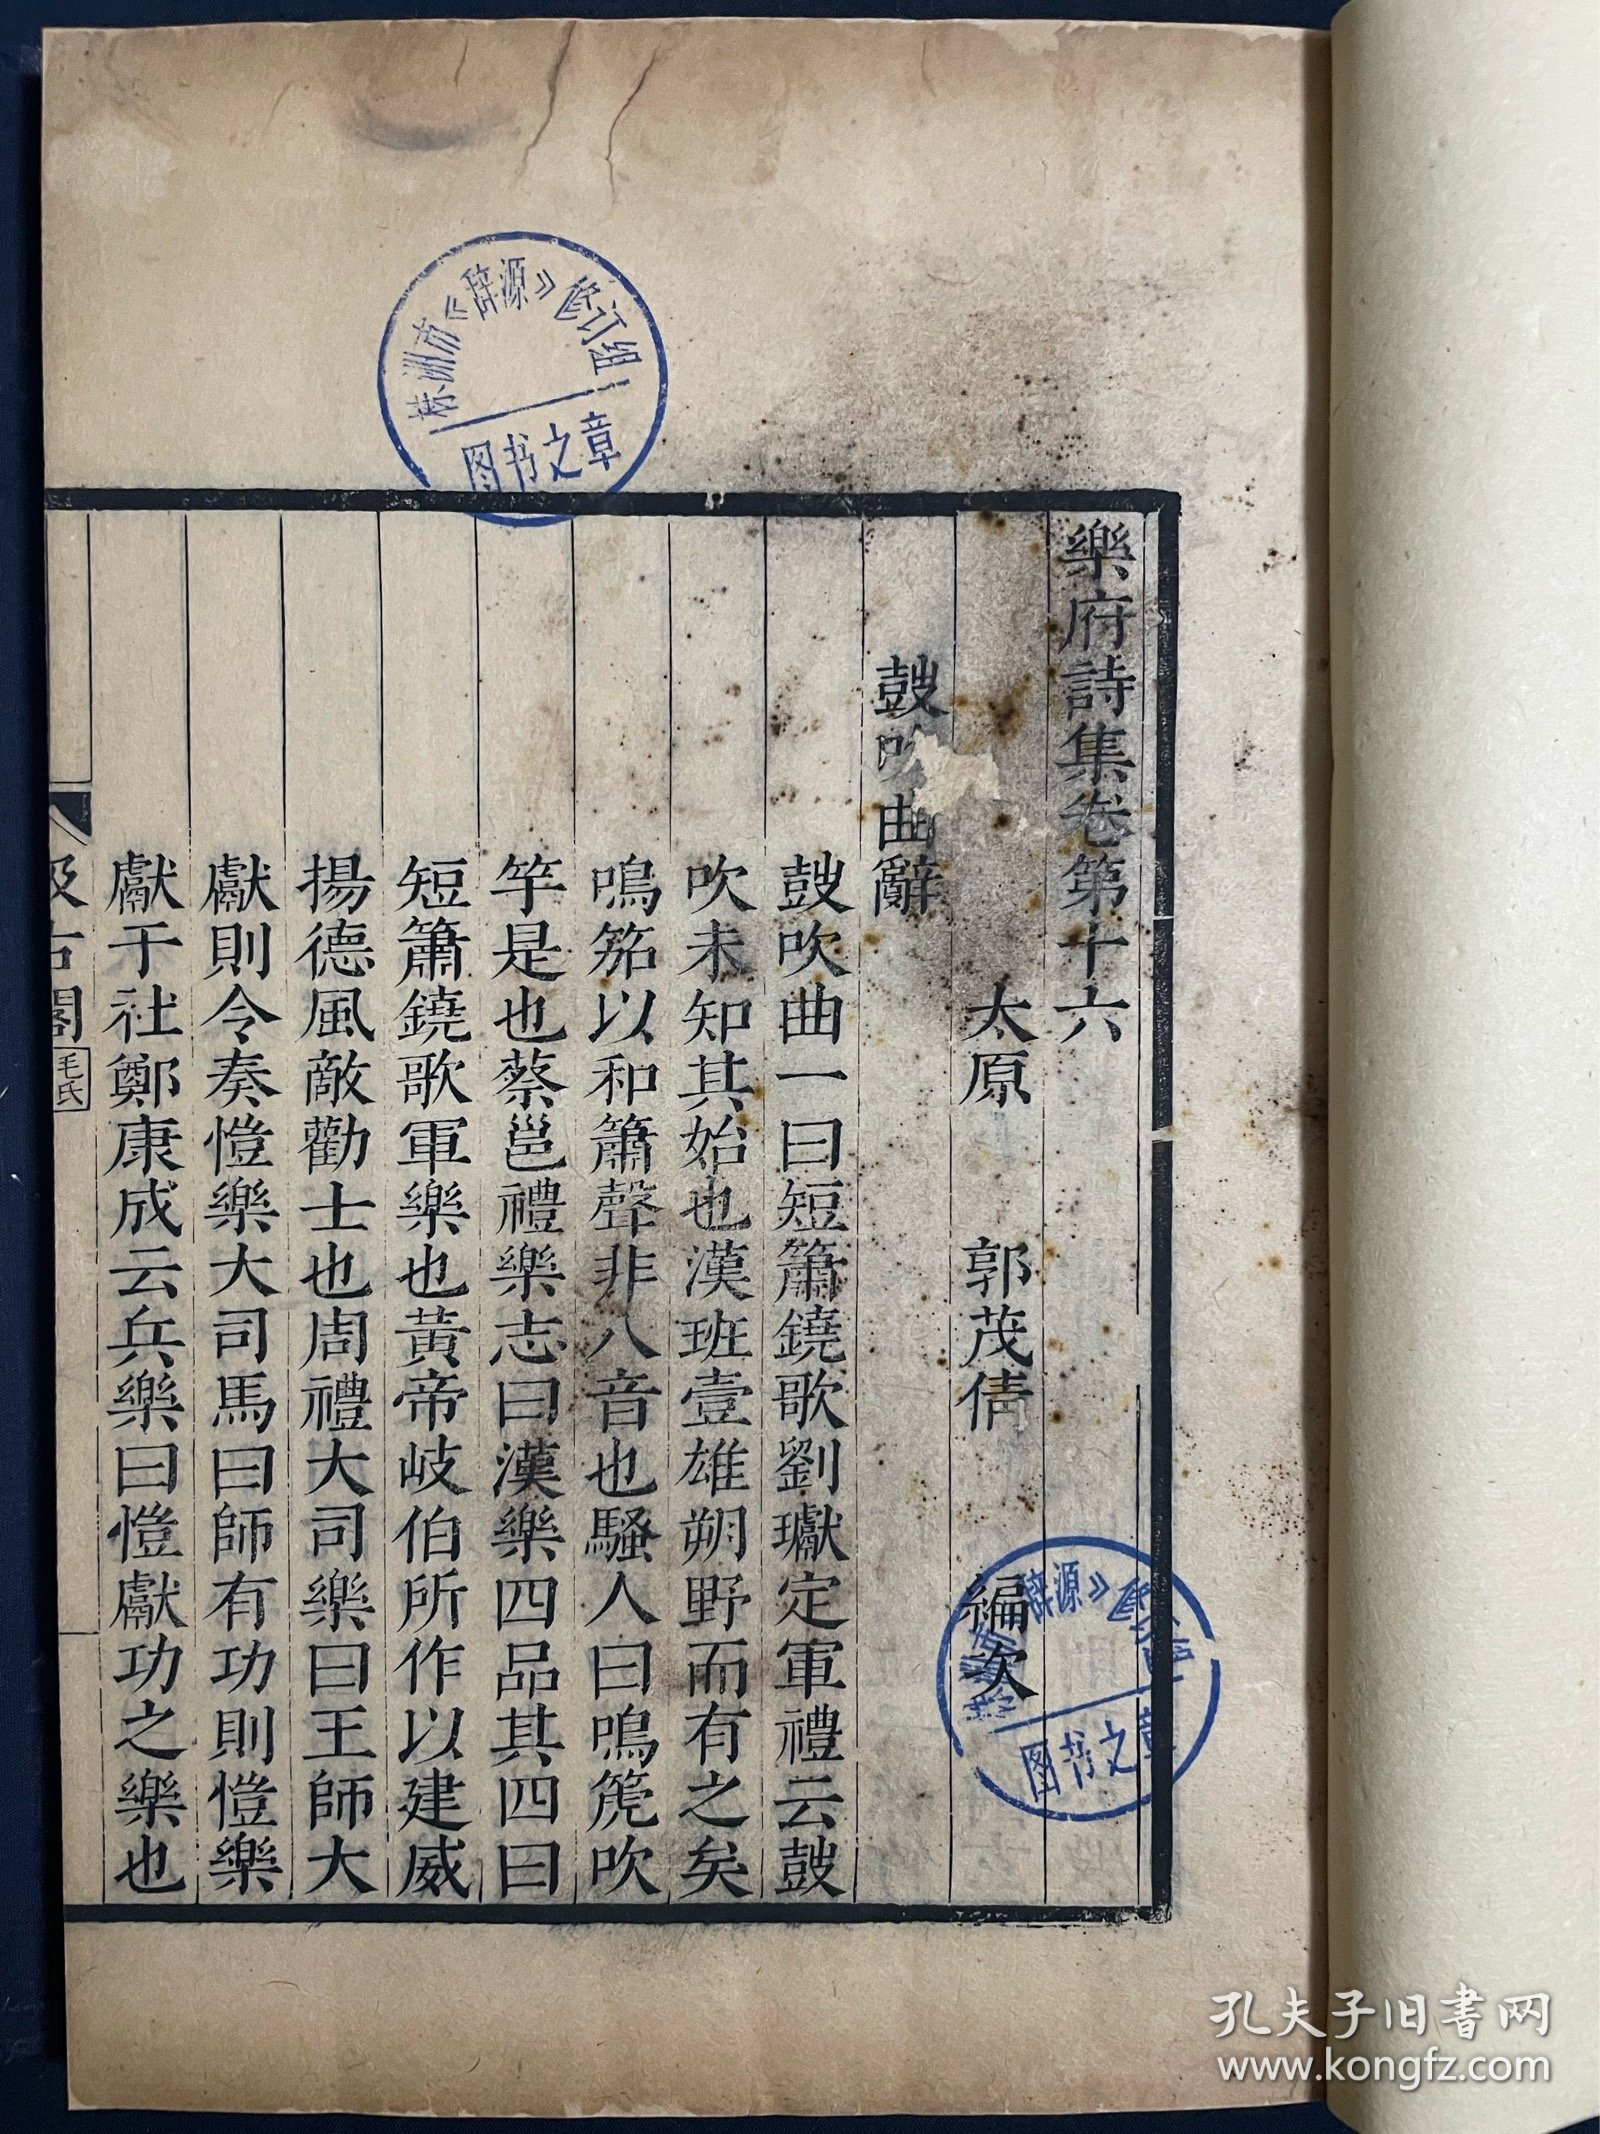 樂府詩集卷第十六
太原 郭茂倩 編次
鼓吹曲辭
鼓吹曲一曰短簫鐃歌劉瓛定軍禮云鼓
吹未知其始也漢班壹雄朔野而有之矣
鳴笳以和簫聲非八音也騷人曰鳴篪吹
竽是也蔡邕禮樂志曰漢樂四品其四曰
短簫鐃歌軍樂也黃帝岐伯所作以建威
揚德風敵勸士也周禮大司樂曰王師大
獻則令奏愷樂大司馬曰師有功則愷樂
獻于社鄭康成云兵樂曰愷獻功之樂也
汲古閣
毛氏
市《辞源》修订组
图书之章
辞源》修
图书之章
孔夫子旧书网
www.kongfz.com